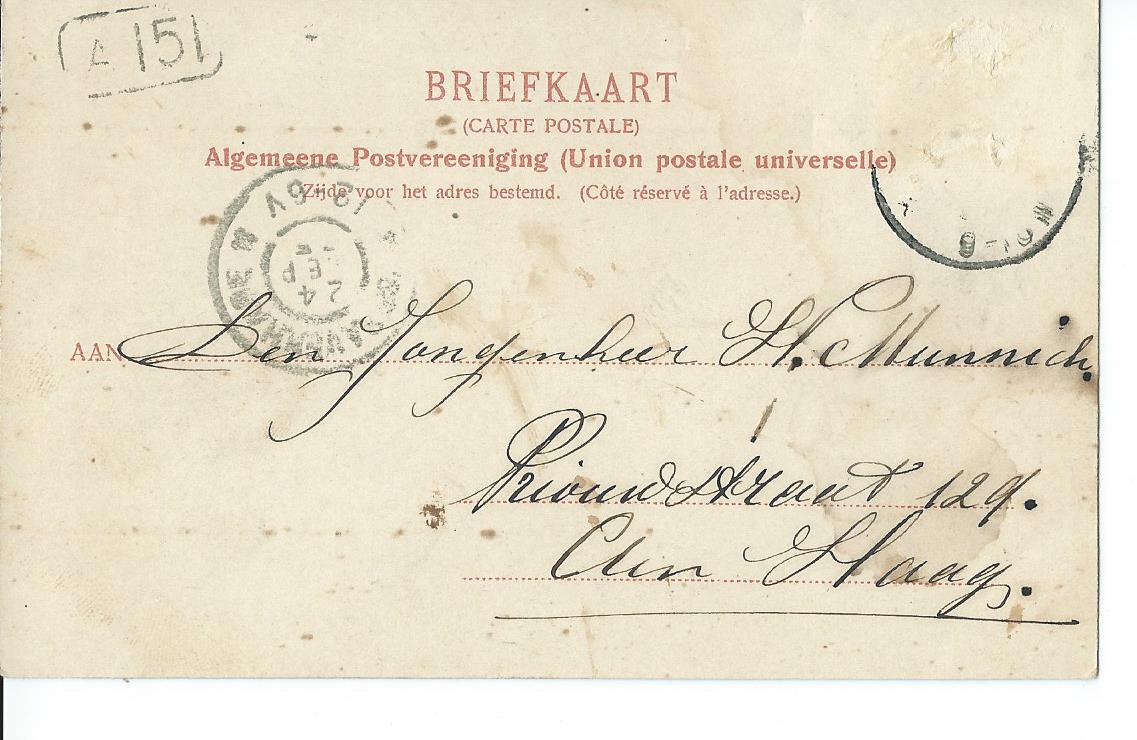 A 151
BRIEFKAART
(CARTE POSTALE)
Algemeene Postvereeniging (Union postale universelle)
Zijde voor het adres bestemd. (Côté réservé à l'adresse.)
24 SEP
AAN Den Jongenheer H. Munnich.
Riouwstraat 129.
den Haag.